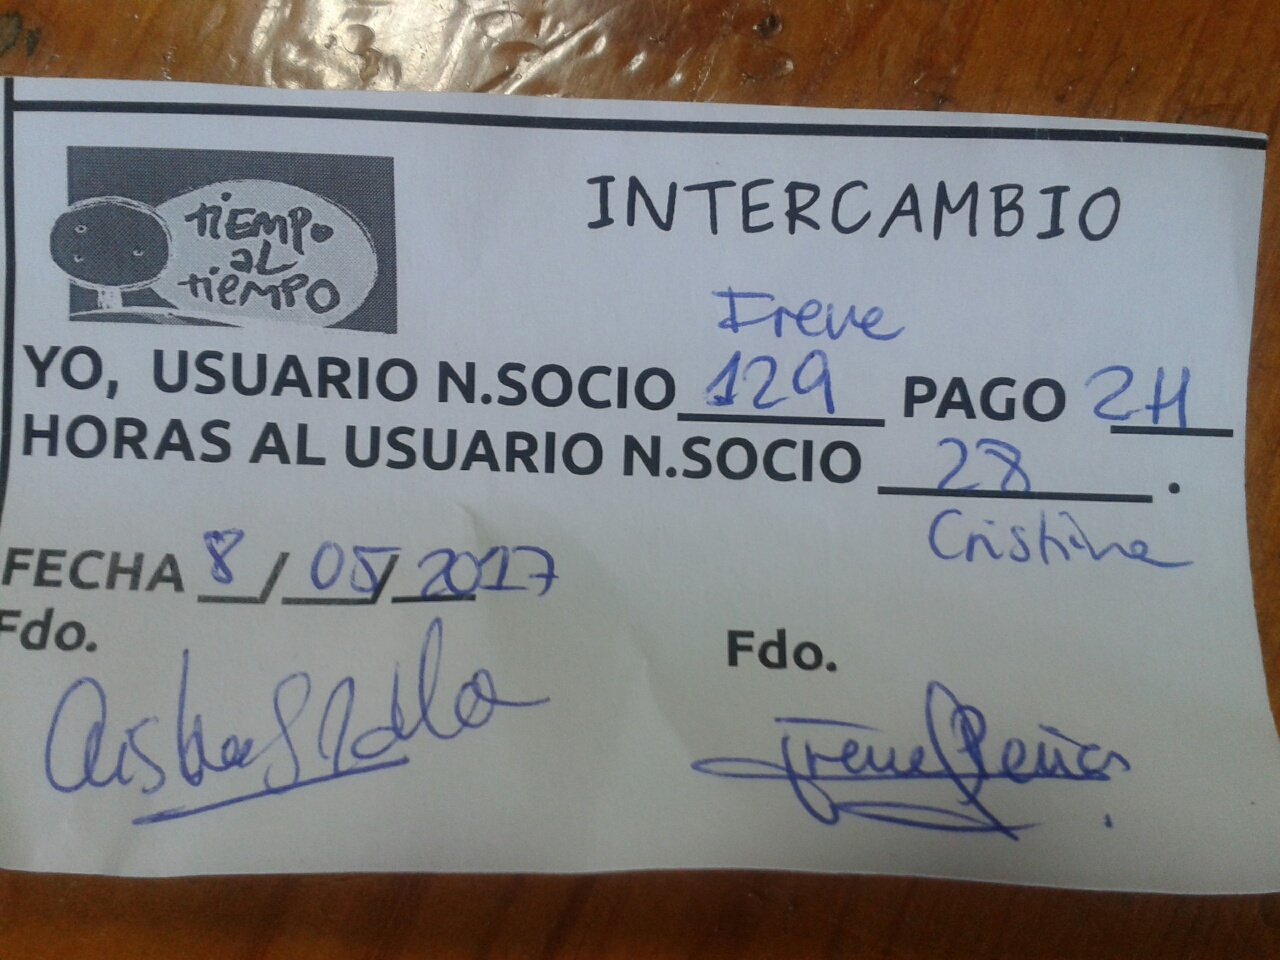 tiEMPo
aL
tiEMPO
INTERCAMBIO
Irene
YO, USUARIO N.SOCIO 129 PAGO 2H
HORAS AL USUARIO N.SOCIO 28.
Cristina
FECHA 8/05/2017
Fdo.
Fdo.
Irene Peñas